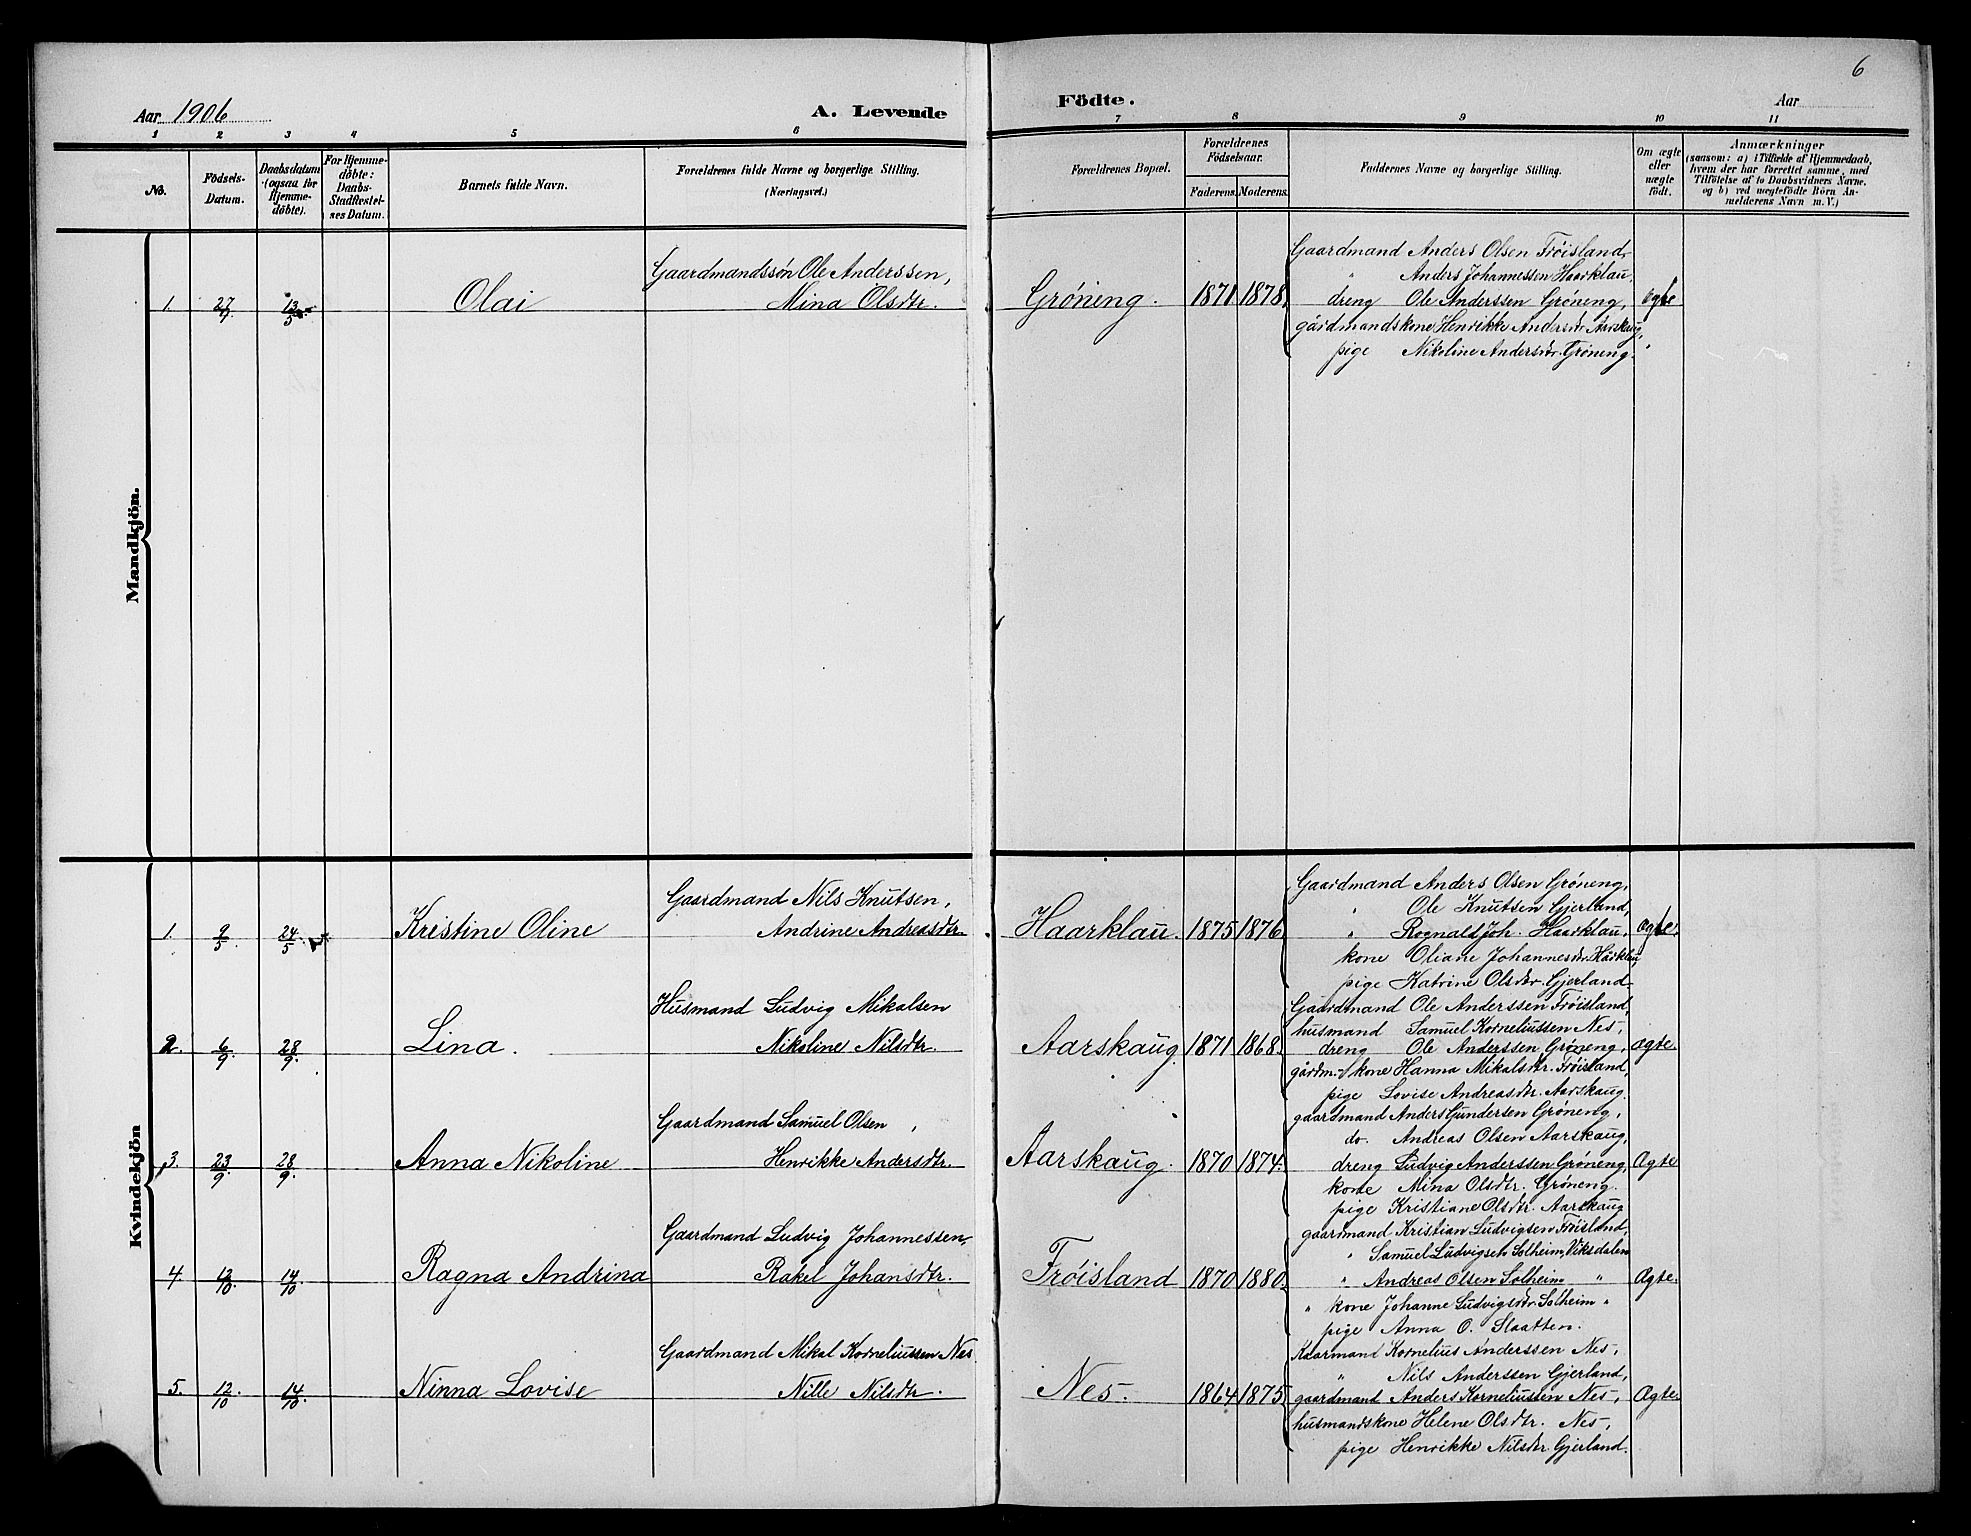 6
Aar 1906
A. Levende
Födte.
Aar
1 2 3 4 5 6 7 8 9 10 11
No.
Födsels-
Datum.
Daabsdatum
(ogsaa for
Hjemme-
döbte).
For Hjemme-
döbte:
Daabs-
Stadfæstel-
ses Datum.
Barnets fulde Navn.
Forældrenes fulde Navne og borgerlige Stilling.
(Næringsvei.)
Forældrenes Bopæl.
Forældrenes
Födselsaar.
Faderens. Moderens.
Faddernes Navne og borgerlige Stilling.
Om ægte
eller
uægte
födt.
Anmærkninger
(saasom: a) i Tilfælde af Hjemmedaab,
hvem der har forrettet samme, med
Tilföielse af to Daabsvidners Navne,
og b) ved uægtefödte Börn An-
melderens Navn m. V.)
Mandkjön.
Gaardmandssøn Ole Anderssen,
1. 27/7 13/5 Olai Mina Olsdtr.
Grøneng. 1871 1878.
Gaardmand Anders Olsen Frøisland,
" Anders Johannessen Haarklau,
dreng Ole Anderssen Grøneng,
gårdmandskone Henrikke Andersdtr Aarskaug,
pige Nikoline Andersdtr. Grøneng.
Ægte
Kvindekjön
Gaardmand Nils Knutsen,
1. 9/5 24/5 Kristine Oline Andrine Andreasdtr.
Haarklau. 1875 1876
Gaardmand Anders Olsen Grøneng,
" Ole Knutsen Gjerland,
" Rognald Joh. Haarklau,
kone Oliane Johannesdtr. Harklau,
pige Katrine Olsdtr. Gjerland.
Ægte.
Husmand Ludvig Mikalsen
2. 6/9 28/9. Lina. Nikoline Nilsdtr.
Aarskaug 1871 1868.
Gaardmand Ole Anderssen Frøisland,
husmand Samuel Korneliussen Nes,
dreng Ole Anderssen Grøneng,
gårdm.-kone Hanna Mikalsdtr. Frøisland,
pige Lovise Andreasdtr. Aarskaug.
Ægte.
Gaardmand Samuel Olsen,
3. 23/9 28/9. Anna Nikoline Henrikke Andersdtr.
Aarskaug. 1870 1874.
gaardmand Anders Gundersen Grøneng,
do. Andreas Olsen Aarskaug,
dreng Ludvig Anderssen Grøneng,
kone Mina Olsdtr. Grøneng.
pige Kristiane Olsdtr. Aarskaug
Ægte
Gaardmand Ludvig Johannessen,
4. 12/10 14/10 Ragna Andrina Rakel Johansdtr.
Frøisland 1870 1880.
gaardmand Kristian Ludvigsen Frøisland,
" Samuel Ludvigsen Solheim, Viksdalen
" Andreas Olsen Solheim "
" kone Johanne Ludvigsdtr. Solheim "
pige Anna O. Slaatten.
Ægte.
Gaardmand Mikal Korneliussen Nes
5. 12/10 14/10. Ninna Lovise Nille Nilsdtr.
Nes. 1864 1875
Kaarmand Kornelius Anderssen Nes,
" Nils Anderssen Gjerland,
gaardmand Anders Korneliussen Nes,
husmandskone Helene Olsdtr. Nes,
pige Henrikke Nilsdtr. Gjerland.
Ægte.